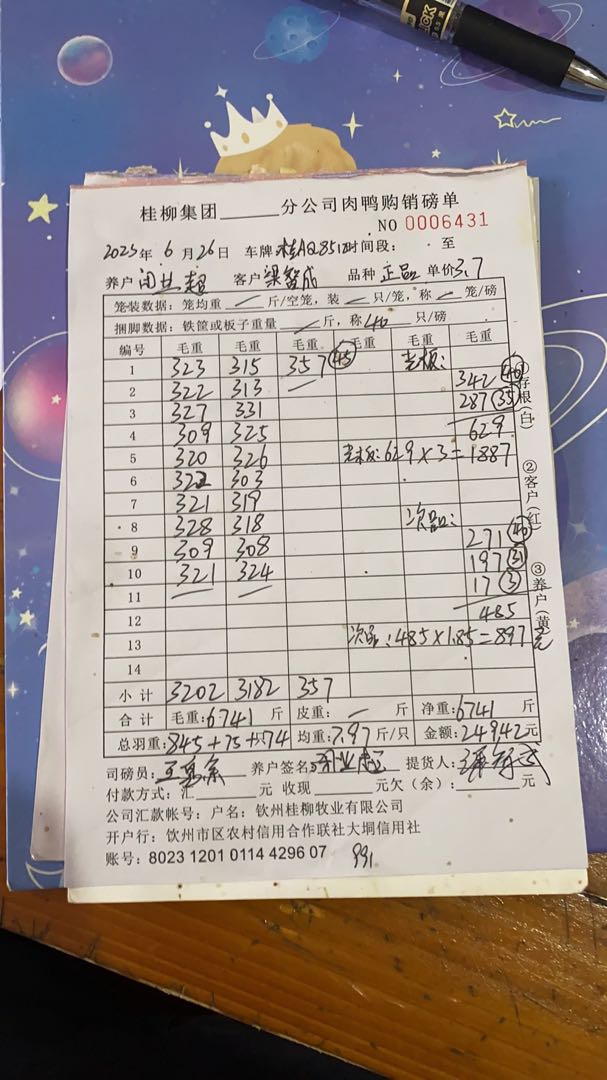 桂柳集团______分公司肉鸭购销磅单
NO 0006431
2025年 6月26日 车牌 桂AQ851 时间段: 至
养户 客户 梁智成 品种 正品 单价3.7
笼装数据: 笼均重 — 斤/空笼, 装 — 只/笼, 称 — 笼/磅
捆脚数据: 铁筐或板子重量 — 斤, 称 40 只/磅
编号 毛重 毛重 毛重 毛重 毛重 毛重
1 323 315 357 (45) 老板:
342 (40)
2 322 313 —
287 (35)
3 327 331
629
4 309 325
5 320 326 老板: 629×3=1887
6 322 303
7 321 319
8 328 318 次品:
271 (40)
9 309 308
197 (31)
10 321 324
17 (3)
11 — —
485
12
13 次品: 485×1.85=897元
14
小计 3202 3182 357
合计 毛重: 6741 斤 皮重: — 斤 净重: 6741 斤
总羽重: 845+75+74 均重: 7.97 斤/只 金额: 24942元
司磅员: 养户签名: 提货人:
付款方式: 汇______元 收现______元欠(余):______元
公司汇款帐号: 户名: 钦州桂柳牧业有限公司
开户行: 钦州市区农村信用合作联社大垌信用社
账号: 8023 1201 0114 4296 07 991
①存根(白)
②客户(红)
③养户(黄)